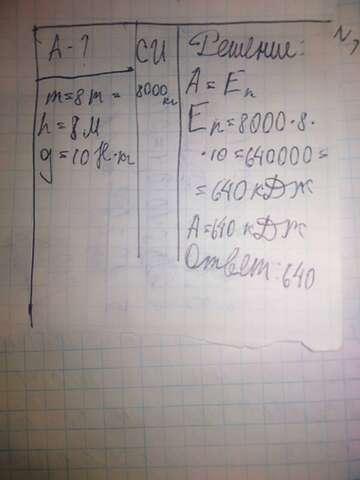 A - ?
m = 8 т =
h = 8 м
g = 10 Н·кг
СИ
8000 кг
Решение:
A = Eп
Eп = 8000 · 8 ·
· 10 = 640000 =
= 640 кДж
A = 640 кДж
Ответ: 640